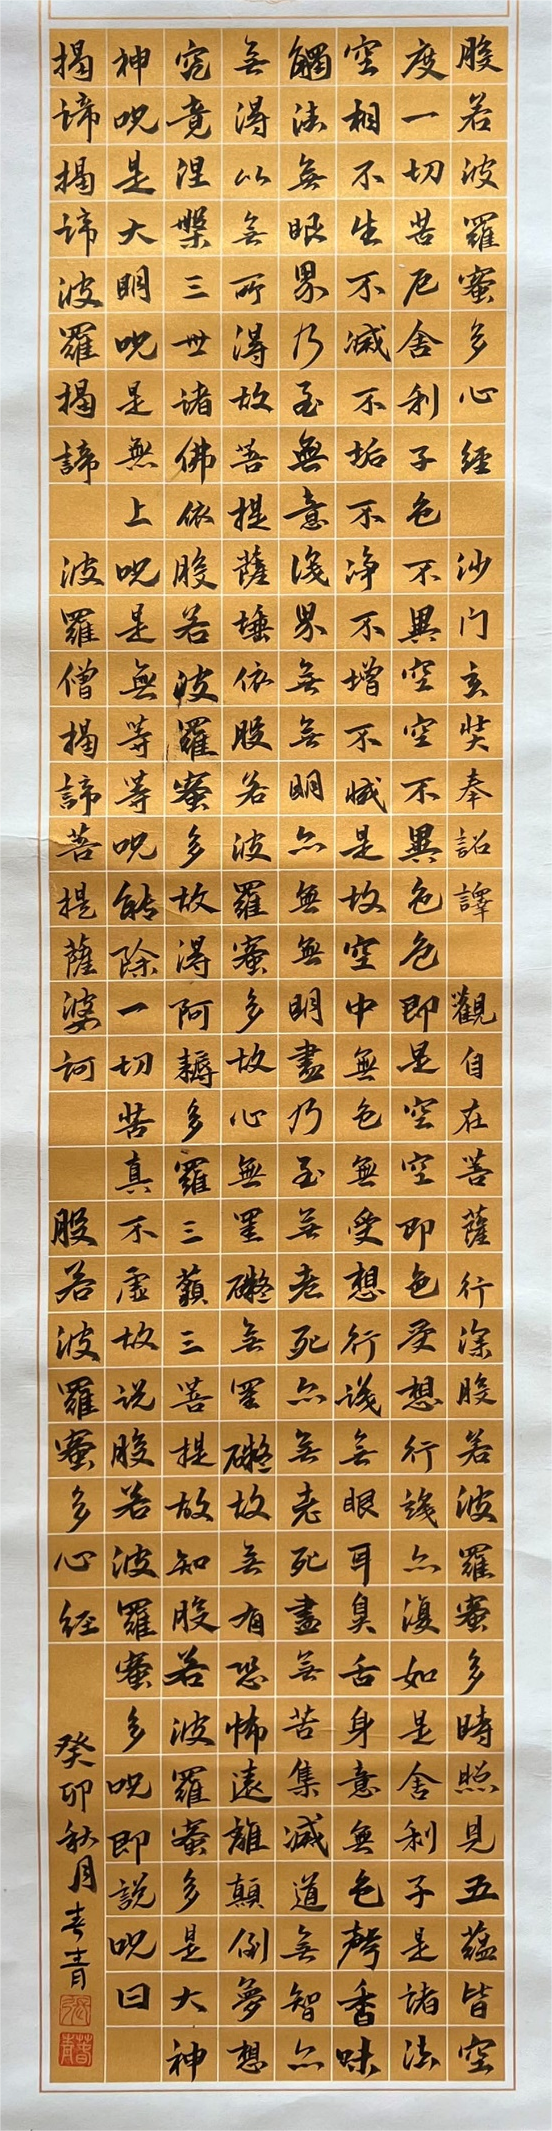 般若波羅蜜多心經 沙门玄奘奉詔譯 觀自在菩薩行深般若波羅蜜多時照見五蕴皆空
度一切苦厄舍利子色不異空空不異色色即是空空即色受想行識亦復如是舍利子是諸法
空相不生不滅不垢不净不增不減是故空中無色無受想行識無眼耳鼻舌身意無色聲香味
觸法無眼界乃至無意識界無無明亦無無明盡乃至無老死亦無老死盡無苦集滅道無智亦
無得以無所得故菩提薩埵依般若波羅蜜多故心無罣礙無罣礙故無有恐怖遠離顛倒夢想
究竟涅槃三世諸佛依般若波羅蜜多故得阿耨多羅三藐三菩提故知般若波羅蜜多是大神
神呪是大明呪是無上呪是無等等呪能除一切苦真不虛故説般若波羅蜜多呪即說呪曰
揭諦揭諦波羅揭諦 波羅僧揭諦菩提薩婆訶 般若波羅蜜多心经
癸卯秋月春青
張
春青